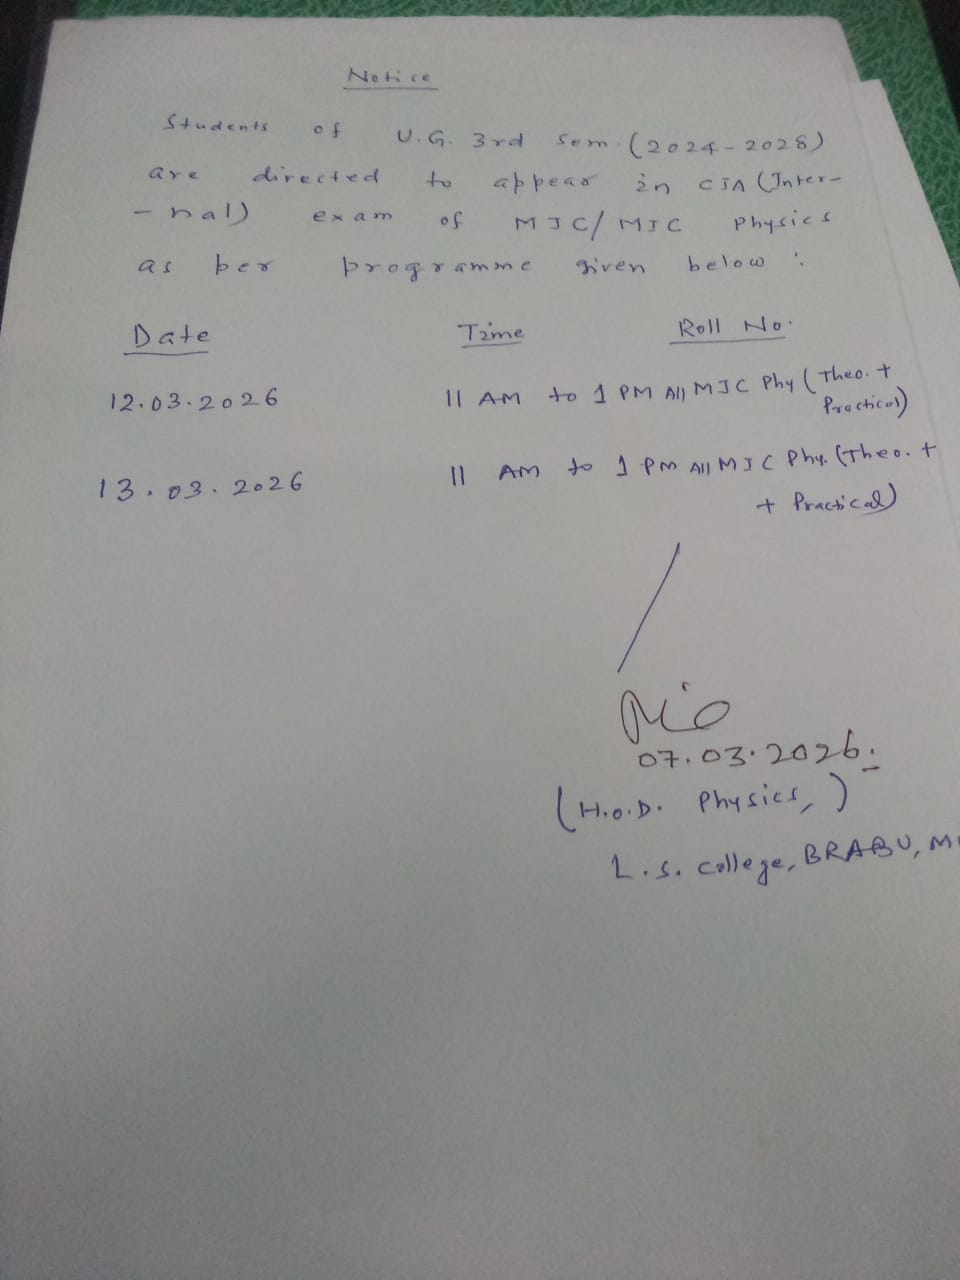 Notice
Students of U.G. 3rd Sem. (2024-2028)
are directed to appear in CIA (Inter-
-nal) exam of MJC/MIC Physics
as per programme given below :
Date Time Roll No.
12.03.2026 11 AM to 1 PM All MJC Phy (Theo. +
Practical)
13.03.2026 11 AM to 1 PM All MIC Phy. (Theo. +
+ Practical)
07.03.2026.
(H.O.D. Physics,)
L.S. College, BRABU, M